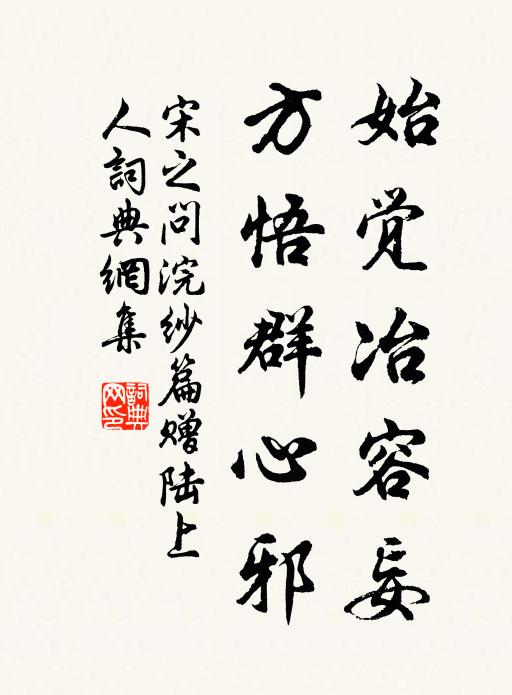 始觉冶容妄
方悟群心邪
宋之问浣纱篇赠陆上
人詞典網集
詞典网印